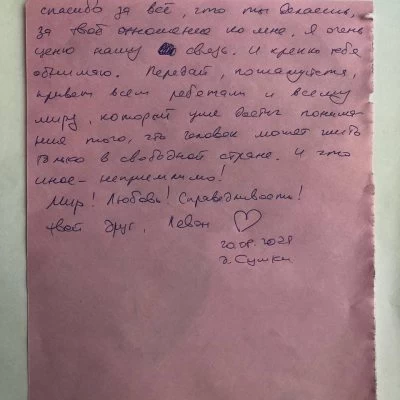 спасибо за всё, что ты делаешь,
за твоё отношение ко мне. Я очень
ценю нашу связь. И крепко тебя
обнимаю. Передай, пожалуйста,
привет всем ребятам и всему
миру, который уже достиг понима-
ния того, что человек может жить
только в свободной стране. И это
иное - неприемлимо!
Мир! Любовь! Справедливость!
твой друг, Леван ♡
д. Сумки